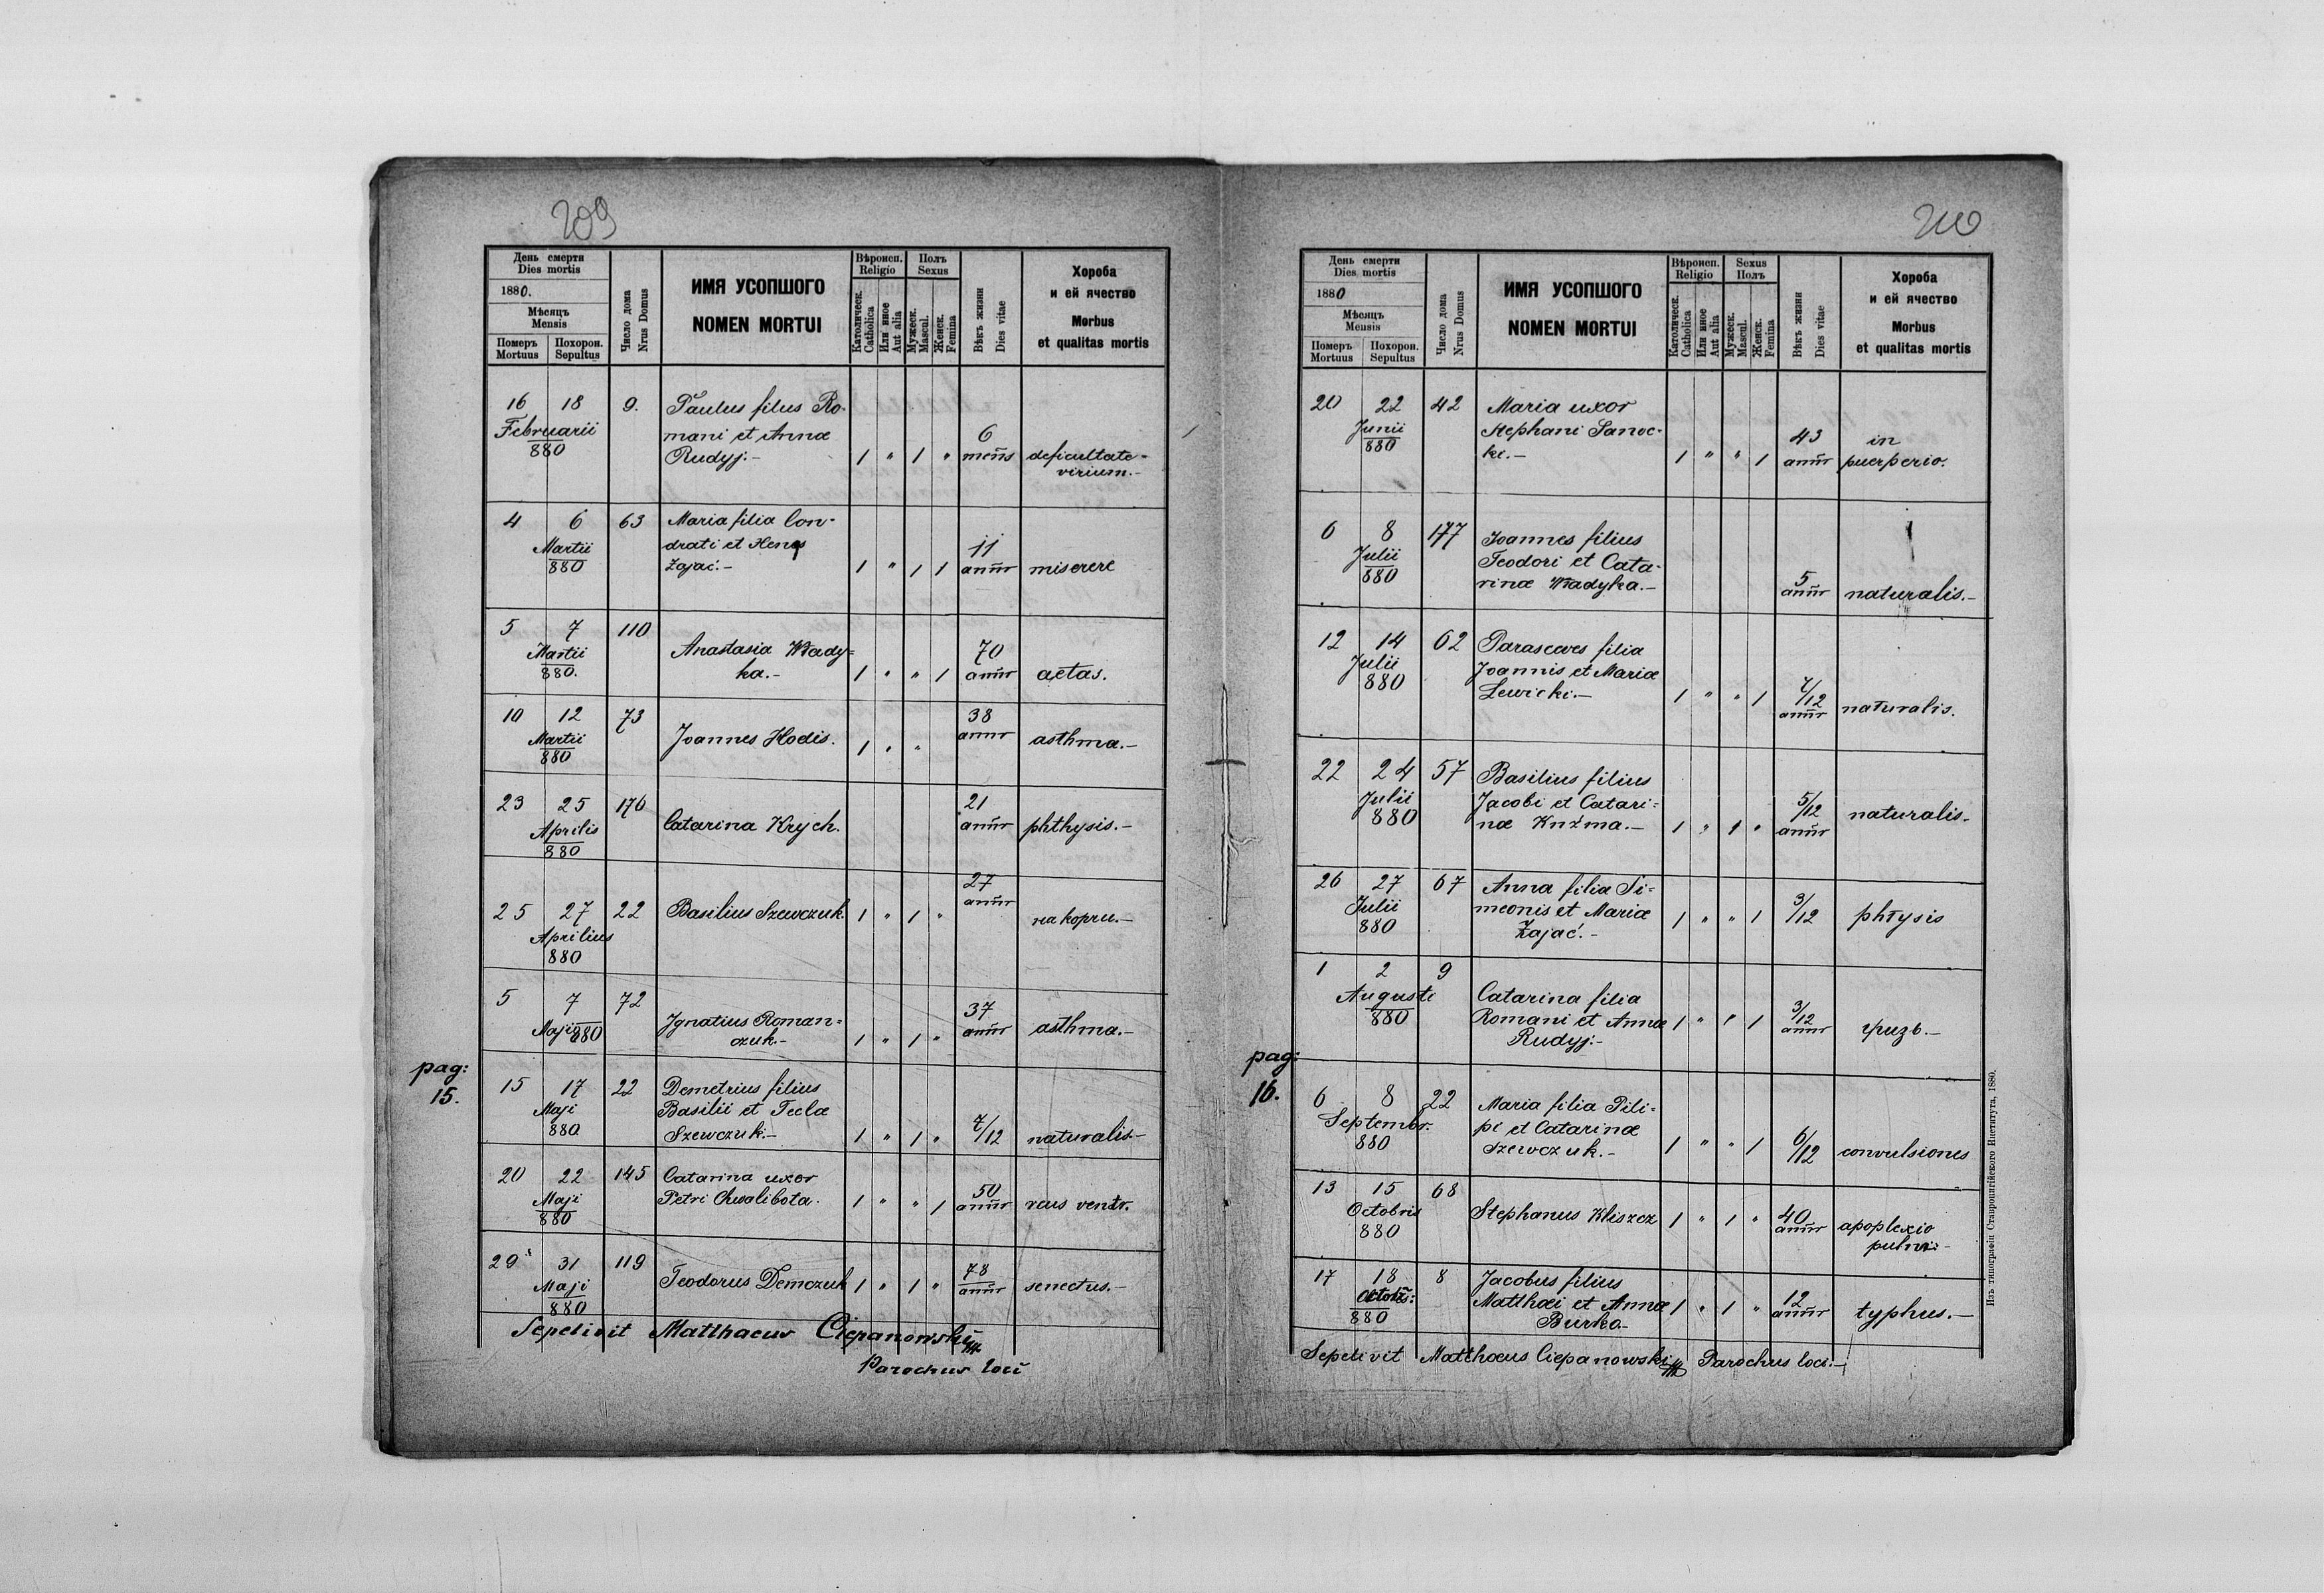 209
День смерти
Dies mortis
1880.
Мѣсяцъ
Mensis
Померъ
Mortuus
Похорон.
Sepultus
Число дома
Nrus Domus
ИМЯ УСОПШОГО
NOMEN MORTUI
Вѣроисп.
Religio
Католическ.
Catholica
Или иное
Aut alia
Полъ
Sexus
Мужеск.
Mascul.
Женск.
Femina
Вѣкъ жизни
Dies vitae
Хороба
и ей ячество
Morbus
et qualitas mortis
16 18 9. Paulus filus Ro-
Februarii mani et Annæ 6
880 Rudyj.- 1 " 1 " mens deficultate-
virium.-
4 6 63 Maria filia Con-
Martii drati et 11
880 Zajać.- 1 " 1 1 annr miserere
5 7 110
Martii Anastasia Włady= 70
880. ka.- 1 " " 1 annr aetas.
10 12 73 38
Martii Joannes Hodis. 1 " " annr asthma.-
880
23 25 176 21
Aprilis Catarina Krych. annr phthysis.-
880
27
25 27 22 Basilius Szewczuk 1 " 1 " annr
Aprilius
880
5 7 72 37
Maji 880 Ignatius Roman= annr asthma.-
czuk.- 1 " 1 "
pag:
15.
15 17 22 Demetrius filius
Maji Basilii et Teclæ
880 Szewczuk.- 1 " 1 " 7/12 naturalis.-
20 22 145 Catarina uxor 50
Maji Petri Chwalibota. 1 " " 1 annr ventr.
880
29 31 119 78
Maji Teodorus Demczuk 1 " 1 " annr senectus.-
880
Sepelivit Matthaeus Ciepanowski
Parochus loci
210
День смерти
Dies mortis
1880
Мѣсяцъ
Mensis
Померъ
Mortuus
Похорон.
Sepultus
Число дома
Nrus Domus
ИМЯ УСОПШОГО
NOMEN MORTUI
Вѣроисп.
Religio
Католическ.
Catholica
Или иное
Aut alia
Sexus
Полъ
Мужеск.
Mascul.
Женск.
Femina
Вѣкъ жизни
Dies vitae
Хороба
и ей ячество
Morbus
et qualitas mortis
20 22 42 Maria uxor
Junii Stephani Sanoc- 43 in
880 ki.- 1 " " 1 annr puerperio.
6 8 177 Joannes filius
Julii Teodori et Cata- 5
880 rinæ Władyka.- annr naturalis.-
12 14 62 Parasceves filia
Julii Joannis et Mariæ 7/12
880 Lewicki.- 1 " " 1 annr naturalis.
22 24 57 Basilius filius
Julii Jacobi et Catari= 5/12 naturalis.
880 næ Kuźma.- 1 " 1 " annr
26 27 67 Anna filia Si=
Julii meonis et Mariæ 1 " " 1 3/12 phtysis
880 Zajać.-
1 2 9
Augusti Catarina filia 3/12
880 Romani et Annæ 1 " " 1 annr
Rudyj.-
pag:
16.
6 8 22 Maria filia Pili=
Septembr. pi et Catarinæ
880 Szewczuk.- 1 " " 1 6/12 convulsiones
13 15 68
Octobris Stephanus Kliszcz 1 " 1 " 40
880 annr apoplexio
pulm:-
17 18 8 Jacobus filius
Octobs: Matthæi et Annæ 1 " 1 " 12
880 Burko.- annr typhus.-
Sepelivit Matthæus Ciepanowski Parochus loci.-
Изъ типографіи Ставропигійского Института, 1880.